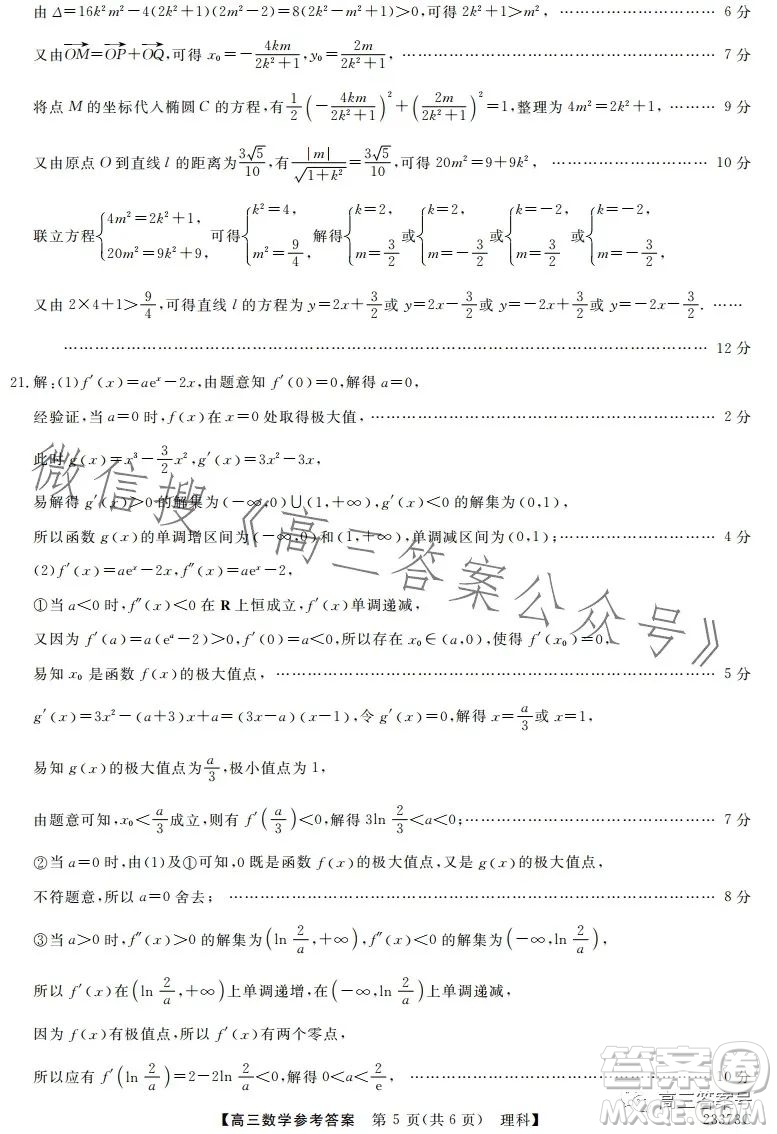 由 Δ=16k²m²-4(2k²+1)(2m²-2)=8(2k²-m²+1)>0,可得 2k²+1>m², ………………………… 6 分
又由 \overrightarrow{OM}=\overrightarrow{OP}+\overrightarrow{OQ},可得 x₀=-\frac{4km}{2k²+1},y₀=\frac{2m}{2k²+1}, ………………………… 7 分
将点 M 的坐标代入椭圆 C 的方程,有\frac{1}{2}(-\frac{4km}{2k²+1})²+(\frac{2m}{2k²+1})²=1,整理为 4m²=2k²+1, ……… 9 分
又由原点 O 到直线 l 的距离为\frac{3\sqrt{5}}{10},有\frac{|m|}{\sqrt{1+k²}}=\frac{3\sqrt{5}}{10},可得 20m²=9+9k², ………………………… 10 分
联立方程{4m²=2k²+1, 20m²=9k²+9, 可得{k²=4, m²=\frac{9}{4}, 解得{k=2, m=\frac{3}{2} 或{k=2, m=-\frac{3}{2} 或{k=-2, m=\frac{3}{2} 或{k=-2, m=-\frac{3}{2},
又由 2×4+1>\frac{9}{4},可得直线 l 的方程为 y=2x+\frac{3}{2}或 y=2x-\frac{3}{2}或 y=-2x+\frac{3}{2}或 y=-2x-\frac{3}{2}. ……
………………………………………… 12 分
21.解:(1)f′(x)=aeˣ-2x,由题意知 f′(0)=0,解得 a=0,
经验证,当 a=0 时,f(x)在 x=0 处取得极大值, ………………………… 2 分
此时 g(x)=x³-\frac{3}{2}x²,g′(x)=3x²-3x,
易解得 g′(x)>0 的解集为(-∞,0)∪(1,+∞),g′(x)<0 的解集为(0,1),
所以函数 g(x)的单调增区间为(-∞,0)和(1,+∞),单调减区间为(0,1); ………………………… 4 分
(2)f′(x)=aeˣ-2x,f″(x)=aeˣ-2,
①当 a<0 时,f″(x)<0 在 R 上恒成立,f′(x)单调递减,
又因为 f′(a)=a(eᵃ-2)>0,f′(0)=a<0,所以存在 x₀∈(a,0),使得 f′(x₀)=0,
易知 x₀ 是函数 f(x)的极大值点, ………………………… 5 分
g′(x)=3x²-(a+3)x+a=(3x-a)(x-1),令 g′(x)=0,解得 x=\frac{a}{3}或 x=1,
易知 g(x)的极大值点为\frac{a}{3},极小值点为 1,
由题意可知,x₀<\frac{a}{3}成立,则有 f′(\frac{a}{3})<0,解得 3ln \frac{2}{3}<a<0; ………………………… 7 分
②当 a=0 时,由(1)及①可知,0 既是函数 f(x)的极大值点,又是 g(x)的极大值点,
不符题意,所以 a=0 舍去; ………………………… 8 分
③当 a>0 时,f″(x)>0 的解集为(ln \frac{2}{a},+∞),f″(x)<0 的解集为(-∞,ln \frac{2}{a}),
所以 f′(x)在(ln \frac{2}{a},+∞)上单调递增,在(-∞,ln \frac{2}{a})上单调递减,
因为 f(x)有极值点,所以 f′(x)有两个零点,
所以应有 f′(ln \frac{2}{a})=2-2ln \frac{2}{a}<0,解得 0<a<\frac{2}{e}, ………………………… 10 分
【高三数学参考答案 第 5 页(共 6 页) 理科】
23373C
微信搜《高三答案公众号》
高三答案号
答案圈
MXQE.COM